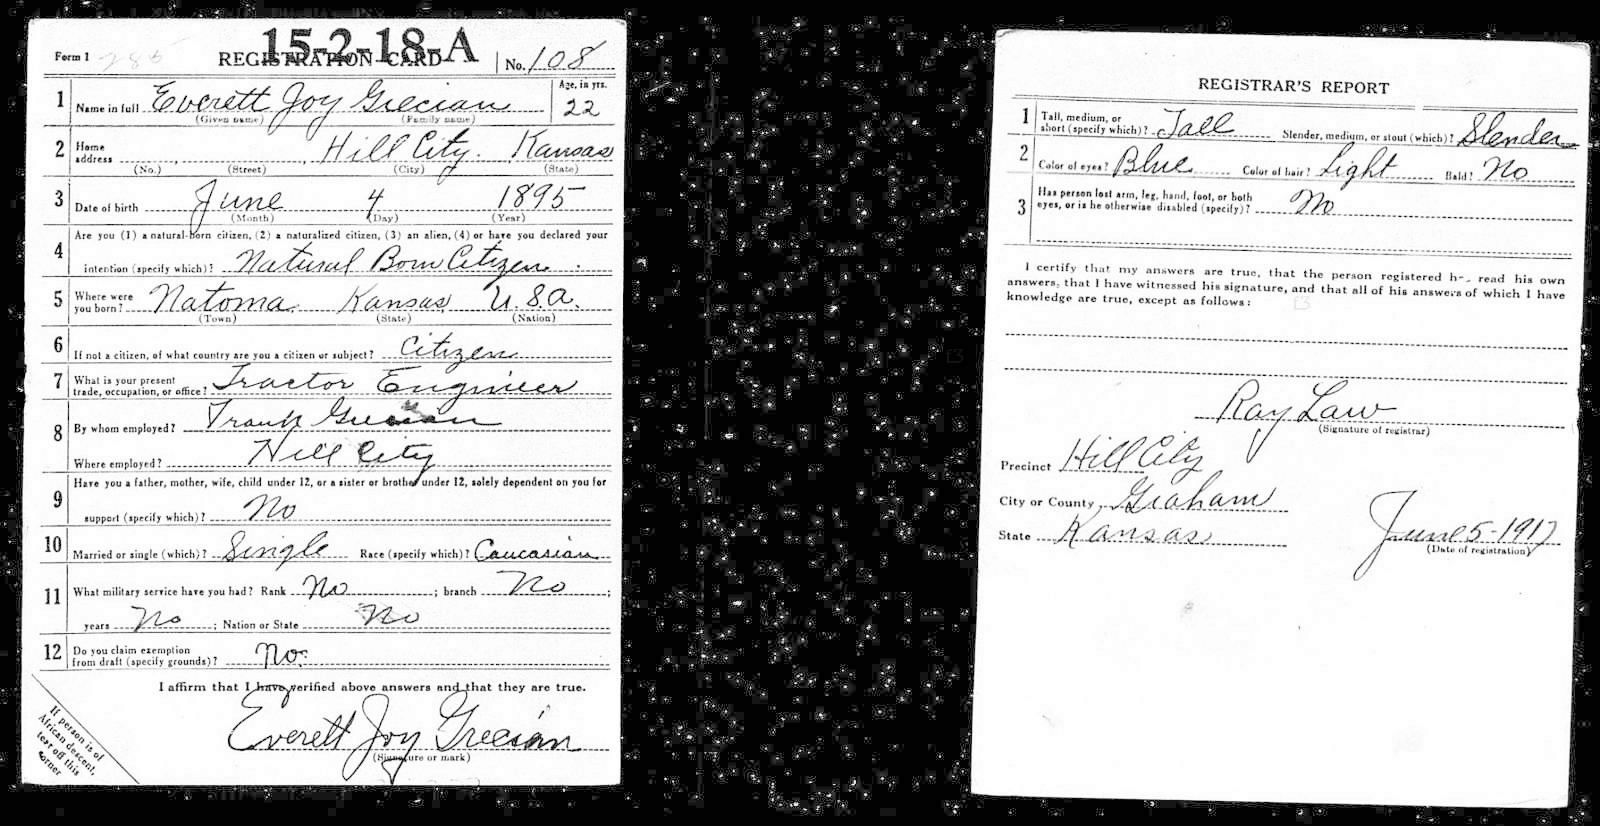 15-2-18-A
Form 1 286 REGISTRATION CARD No. 108
1 Name in full Everett Joy Grecian Age, in yrs. 22
(Given name) (Family name)
2 Home address Hill City. Kansas
(No.) (Street) (City) (State)
3 Date of birth June 4 1895
(Month) (Day) (Year)
4 Are you (1) a natural-born citizen, (2) a naturalized citizen, (3) an alien, (4) or have you declared your
intention (specify which)? Natural Born Citizen.
5 Where were you born? Natoma Kansas U.S.A.
(Town) (State) (Nation)
6 If not a citizen, of what country are you a citizen or subject? Citizen
7 What is your present trade, occupation, or office? Tractor Engineer
8 By whom employed? Frank Grecian
Where employed? Hill City
9 Have you a father, mother, wife, child under 12, or a sister or brother under 12, solely dependent on you for
support (specify which)? No
10 Married or single (which)? Single Race (specify which)? Caucasian
11 What military service have you had? Rank No ; branch No ;
years No ; Nation or State No
12 Do you claim exemption from draft (specify grounds)? No.
I affirm that I have verified above answers and that they are true.
Everett Joy Grecian
(Signature or mark)
If person is of
African descent,
tear off this
corner
REGISTRAR'S REPORT
1 Tall, medium, or short (specify which)? Tall Slender, medium, or stout (which)? Slender
2 Color of eyes? Blue Color of hair? Light Bald? No
3 Has person lost arm, leg, hand, foot, or both
eyes, or is he otherwise disabled (specify)? No
I certify that my answers are true, that the person registered has read his own
answers, that I have witnessed his signature, and that all of his answers of which I have
knowledge are true, except as follows:
Ray Law
(Signature of registrar)
Precinct Hill City
City or County Graham
State Kansas June 5-1917
(Date of registration)